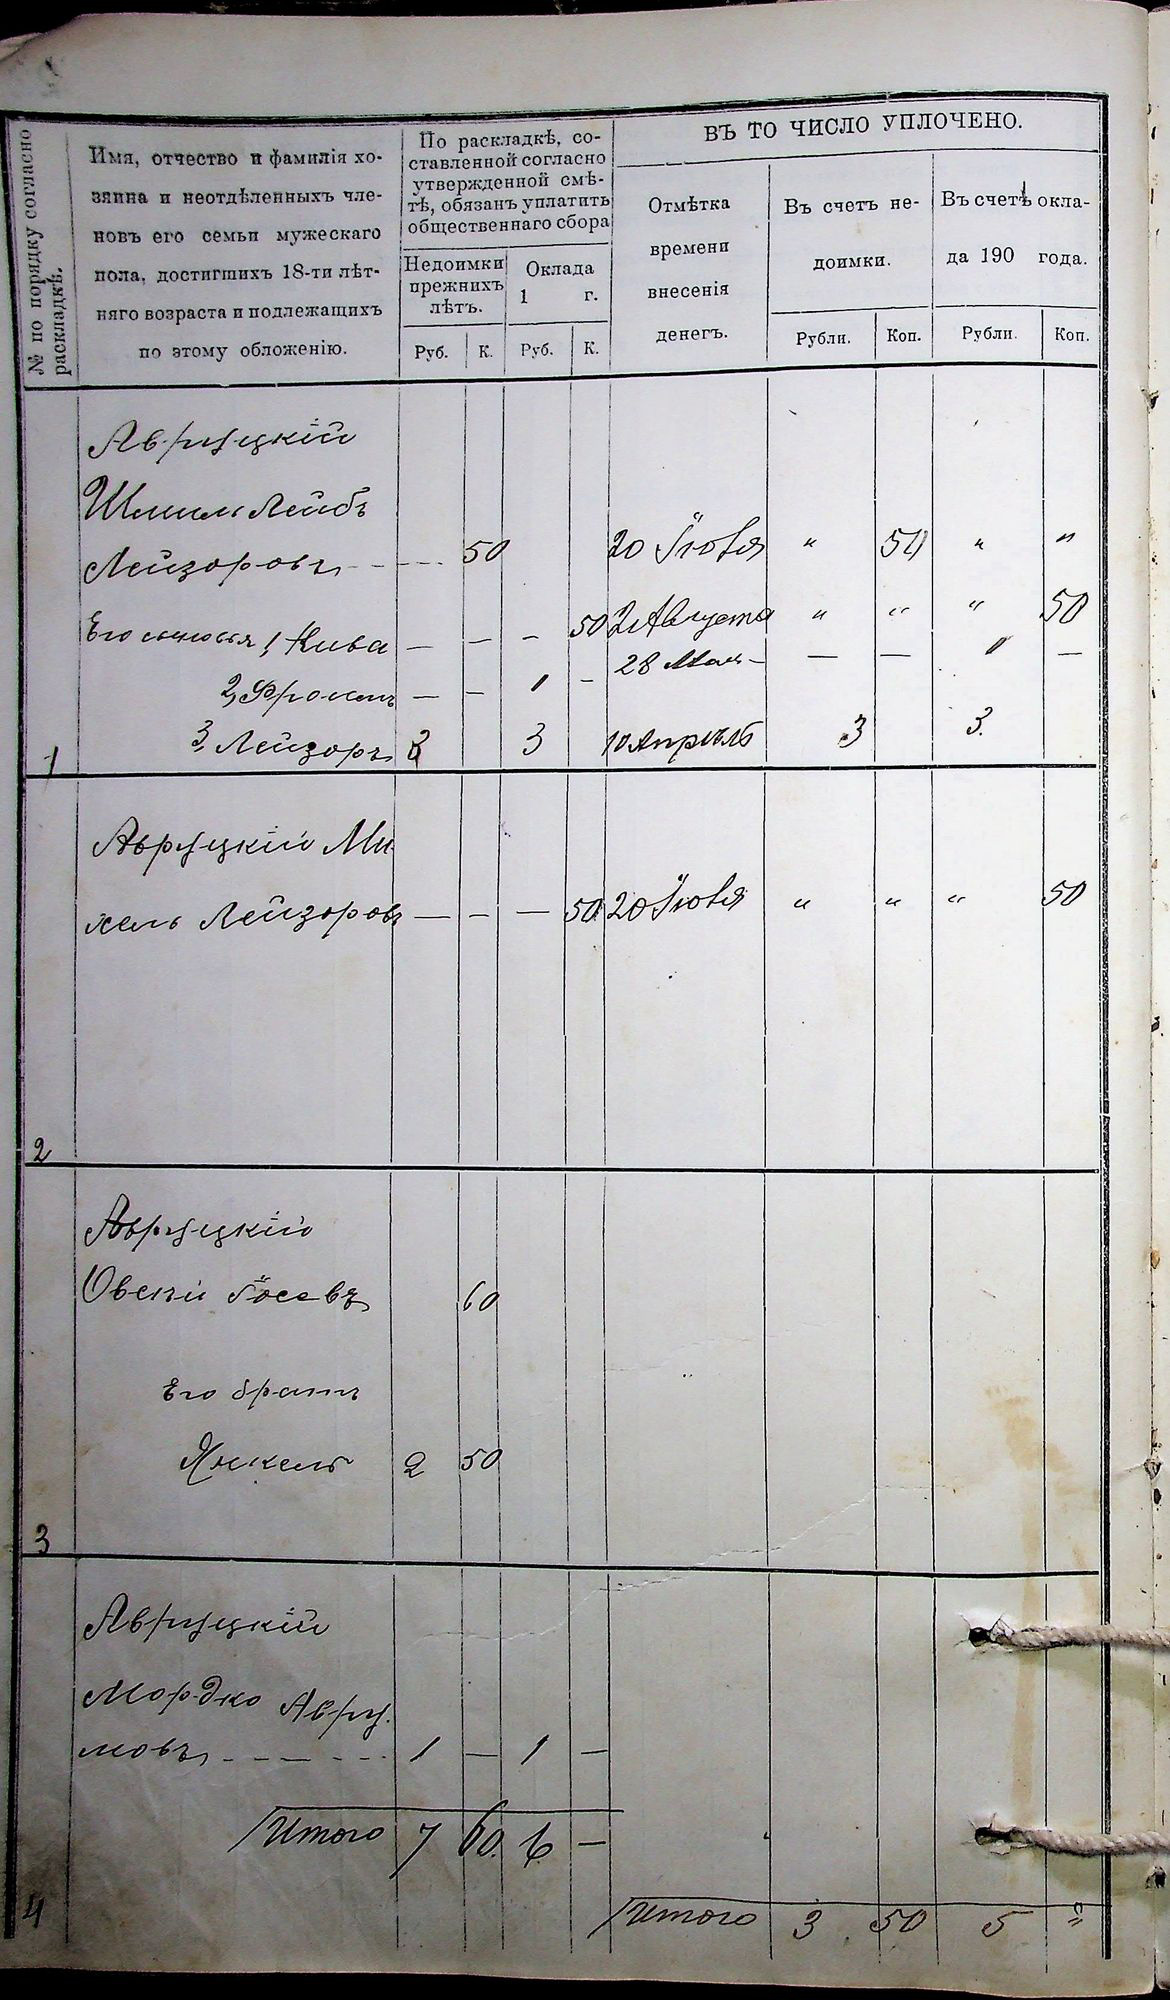 № по порядку согласно
раскладкѣ.
Имя, отчество и фамилія хо-
зяина и неотдѣленныхъ чле-
новъ его семьи мужескаго
пола, достигшихъ 18-ти лѣт-
няго возраста и подлежащихъ
по этому обложенію.
По раскладкѣ, со-
ставленной согласно
утвержденной смѣ-
тѣ, обязанъ уплатить
общественнаго сбора
Недоимки
прежнихъ
лѣтъ.
Оклада
1 г.
Руб. К. Руб. К.
ВЪ ТО ЧИСЛО УПЛОЧЕНО.
Отмѣтка
времени
внесенія
денегъ.
Въ счетъ не-
доимки.
Рубли. Коп.
Въ счетъ окла-
да 190 года.
Рубли. Коп.
Авруцкій
Лейбъ
Лейзоровъ 50 20 Іюля " 50 " "
Его сыновья 1, Кива — — — 50 2 Августа " " " 50
2, Фроимъ — — 1 — 28 Мая — — 1 —
3, Лейзоръ 3 3 10 Апрѣль 3 3.
1
Авруцкій Ми
хель Лейзоровъ — — — 50 20 Іюля " " " 50
2
Авруцкій
Овсей Іосевъ 60
Его братъ
Янкель 2 50
3
Авруцкій
Мордко Авру-
мовъ 1 — 1 —
Итого 7 60. 6. —
4
Итого 3 50 5 "